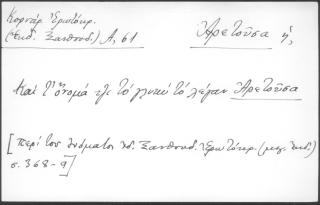 Κορνάρ. Ἐρωτόκρ.
(ἔκδ. Ξανθουδ.) Α, 61
Ἀρετοῦσα ἡ,
Καὶ τ' ὄνομά τζι τὸ γλυκὺ τὸ λέγαν Ἀρετοῦσα
[περὶ τοῦ ὀνόματος ἰδ. Ξανθουδ. Ἐρωτόκρ. (μεγ. ἔκδ.)
σ. 368-9]